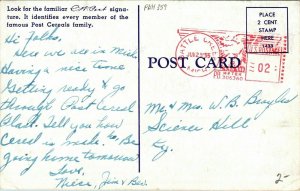 Look for the familiar C.W. Post signa-
ture. It identifies every member of the
famous Post Cereals family.
PBH 359
PLACE
2 CENT
STAMP
HERE
POST CARD
BATTLE CREEK
METER
02
Hi folks,
Here we are in Mich.
Having a nice time
Getting ready to go
through Post Cereal
Plant. Tell you how
Cereal is made. So Be
going home tomorrow
Love,
Niece, Jim & Bea.
Mr & Mrs. W. B.
Science Hill
Ky.
2-